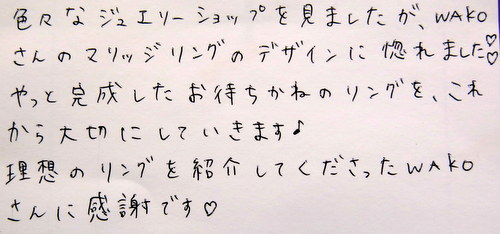 色々なジュエリーショップを見ましたが、WAKO
さんのマリッジリングのデザインに惚れました♡♡
やっと完成したお待ちかねのリングを、これ
から大切にしていきます♪
理想のリングを紹介してくださったWAKO
さんに感謝です♡